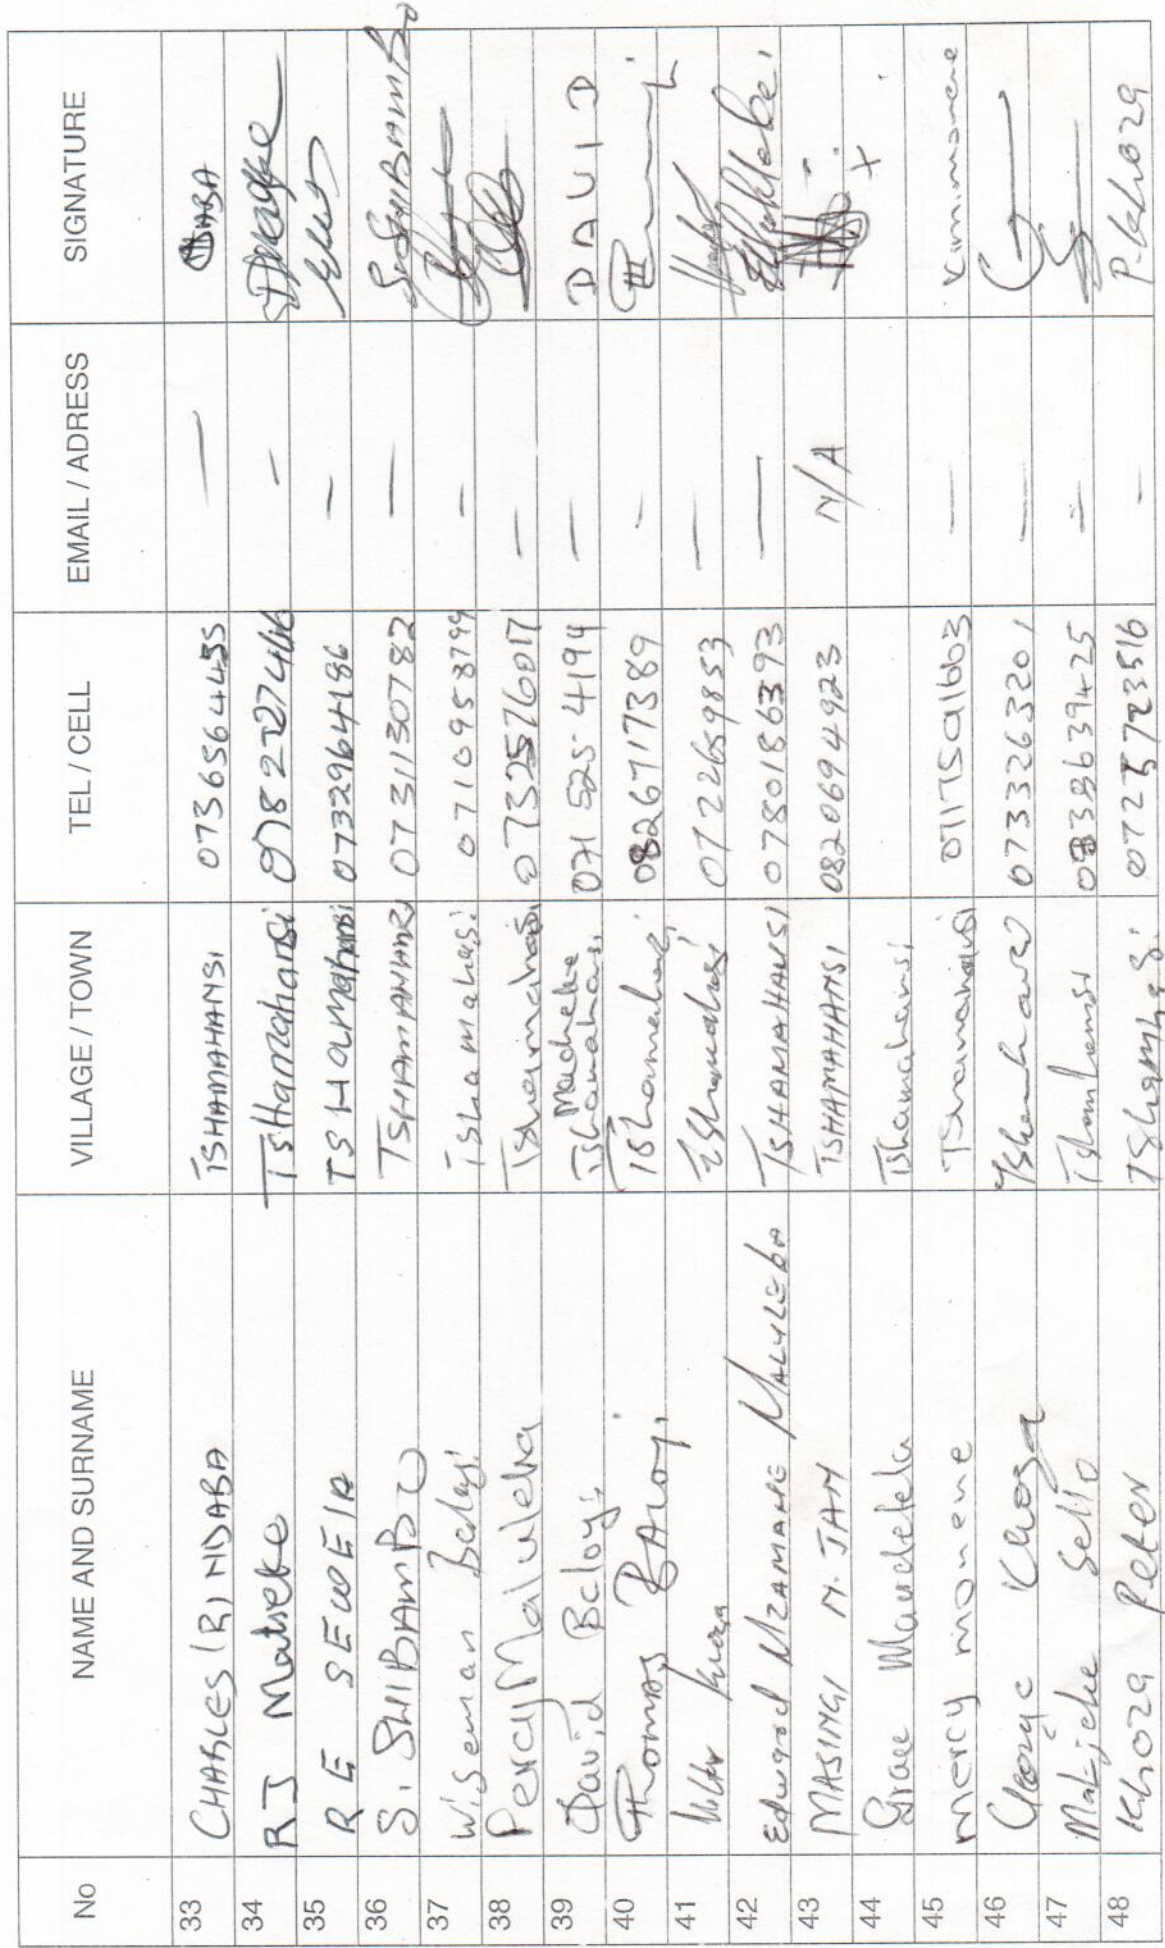 No NAME AND SURNAME VILLAGE / TOWN TEL / CELL EMAIL / ADRESS SIGNATURE
33 CHARLES (R) NDABA TSHAMAHANSI 0736564455 —
34 RJ Matseke TsHamahansi 0782227446 -
35 R E SEWEIA TSHamahansi 0732964186 -
36 S. SHIBAMBU 0731130782 —
37 Wiseman Baloyi Tshamahasi 0710958799 -
38 Percy Maluleka 0732576017 —
39 David Baloyi Madheke Tshamahasi 071 525-4194 — DAVID
40 Thomas BAloyi Tshamahasi 0826717389 -
41 0722659853 —
42 Edward MZAMANE MALULEBA TSHAMAHANSI 0780186393 —
43 MASINGI M. JAN TSHAMAHANSI 0820694923 N/A
44 Grace Mandlela Tshamahansi X
45 mercy monene Tshamahansi 0717501663 — K.m.monene
46 George Khoza 0733263201 —
47 Sello 0838639425 -
48 Khoza Peter 0725723516 - P.khoza